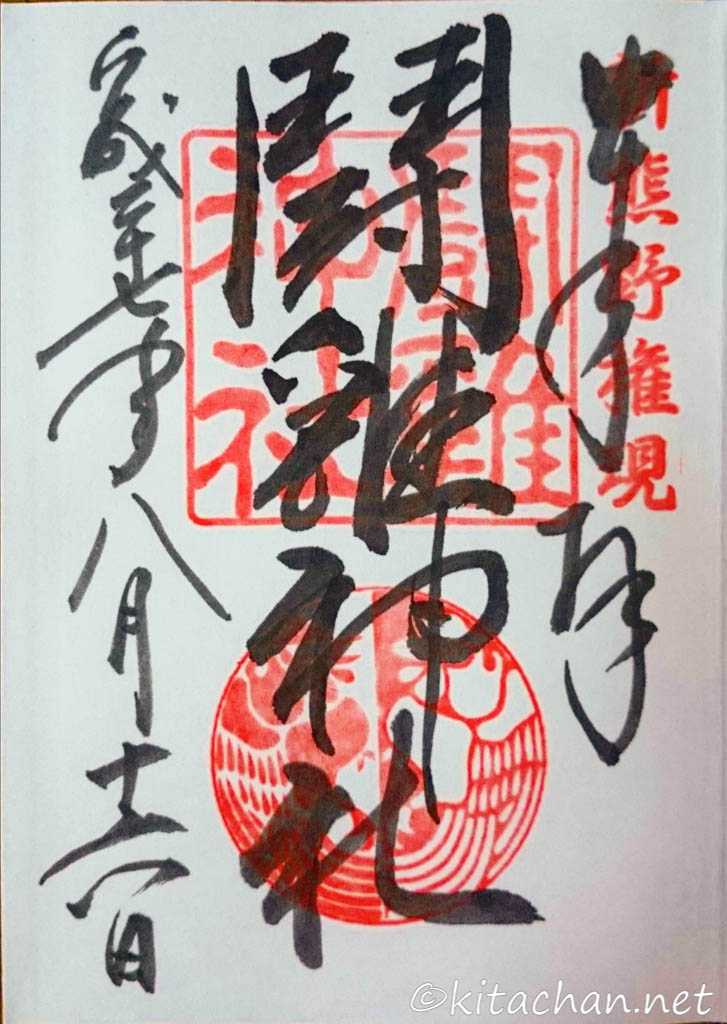 奉拝
新熊野権現
鬪雞神社
鬪雞神社
平成二十七年八月十六日
©kitachan.net